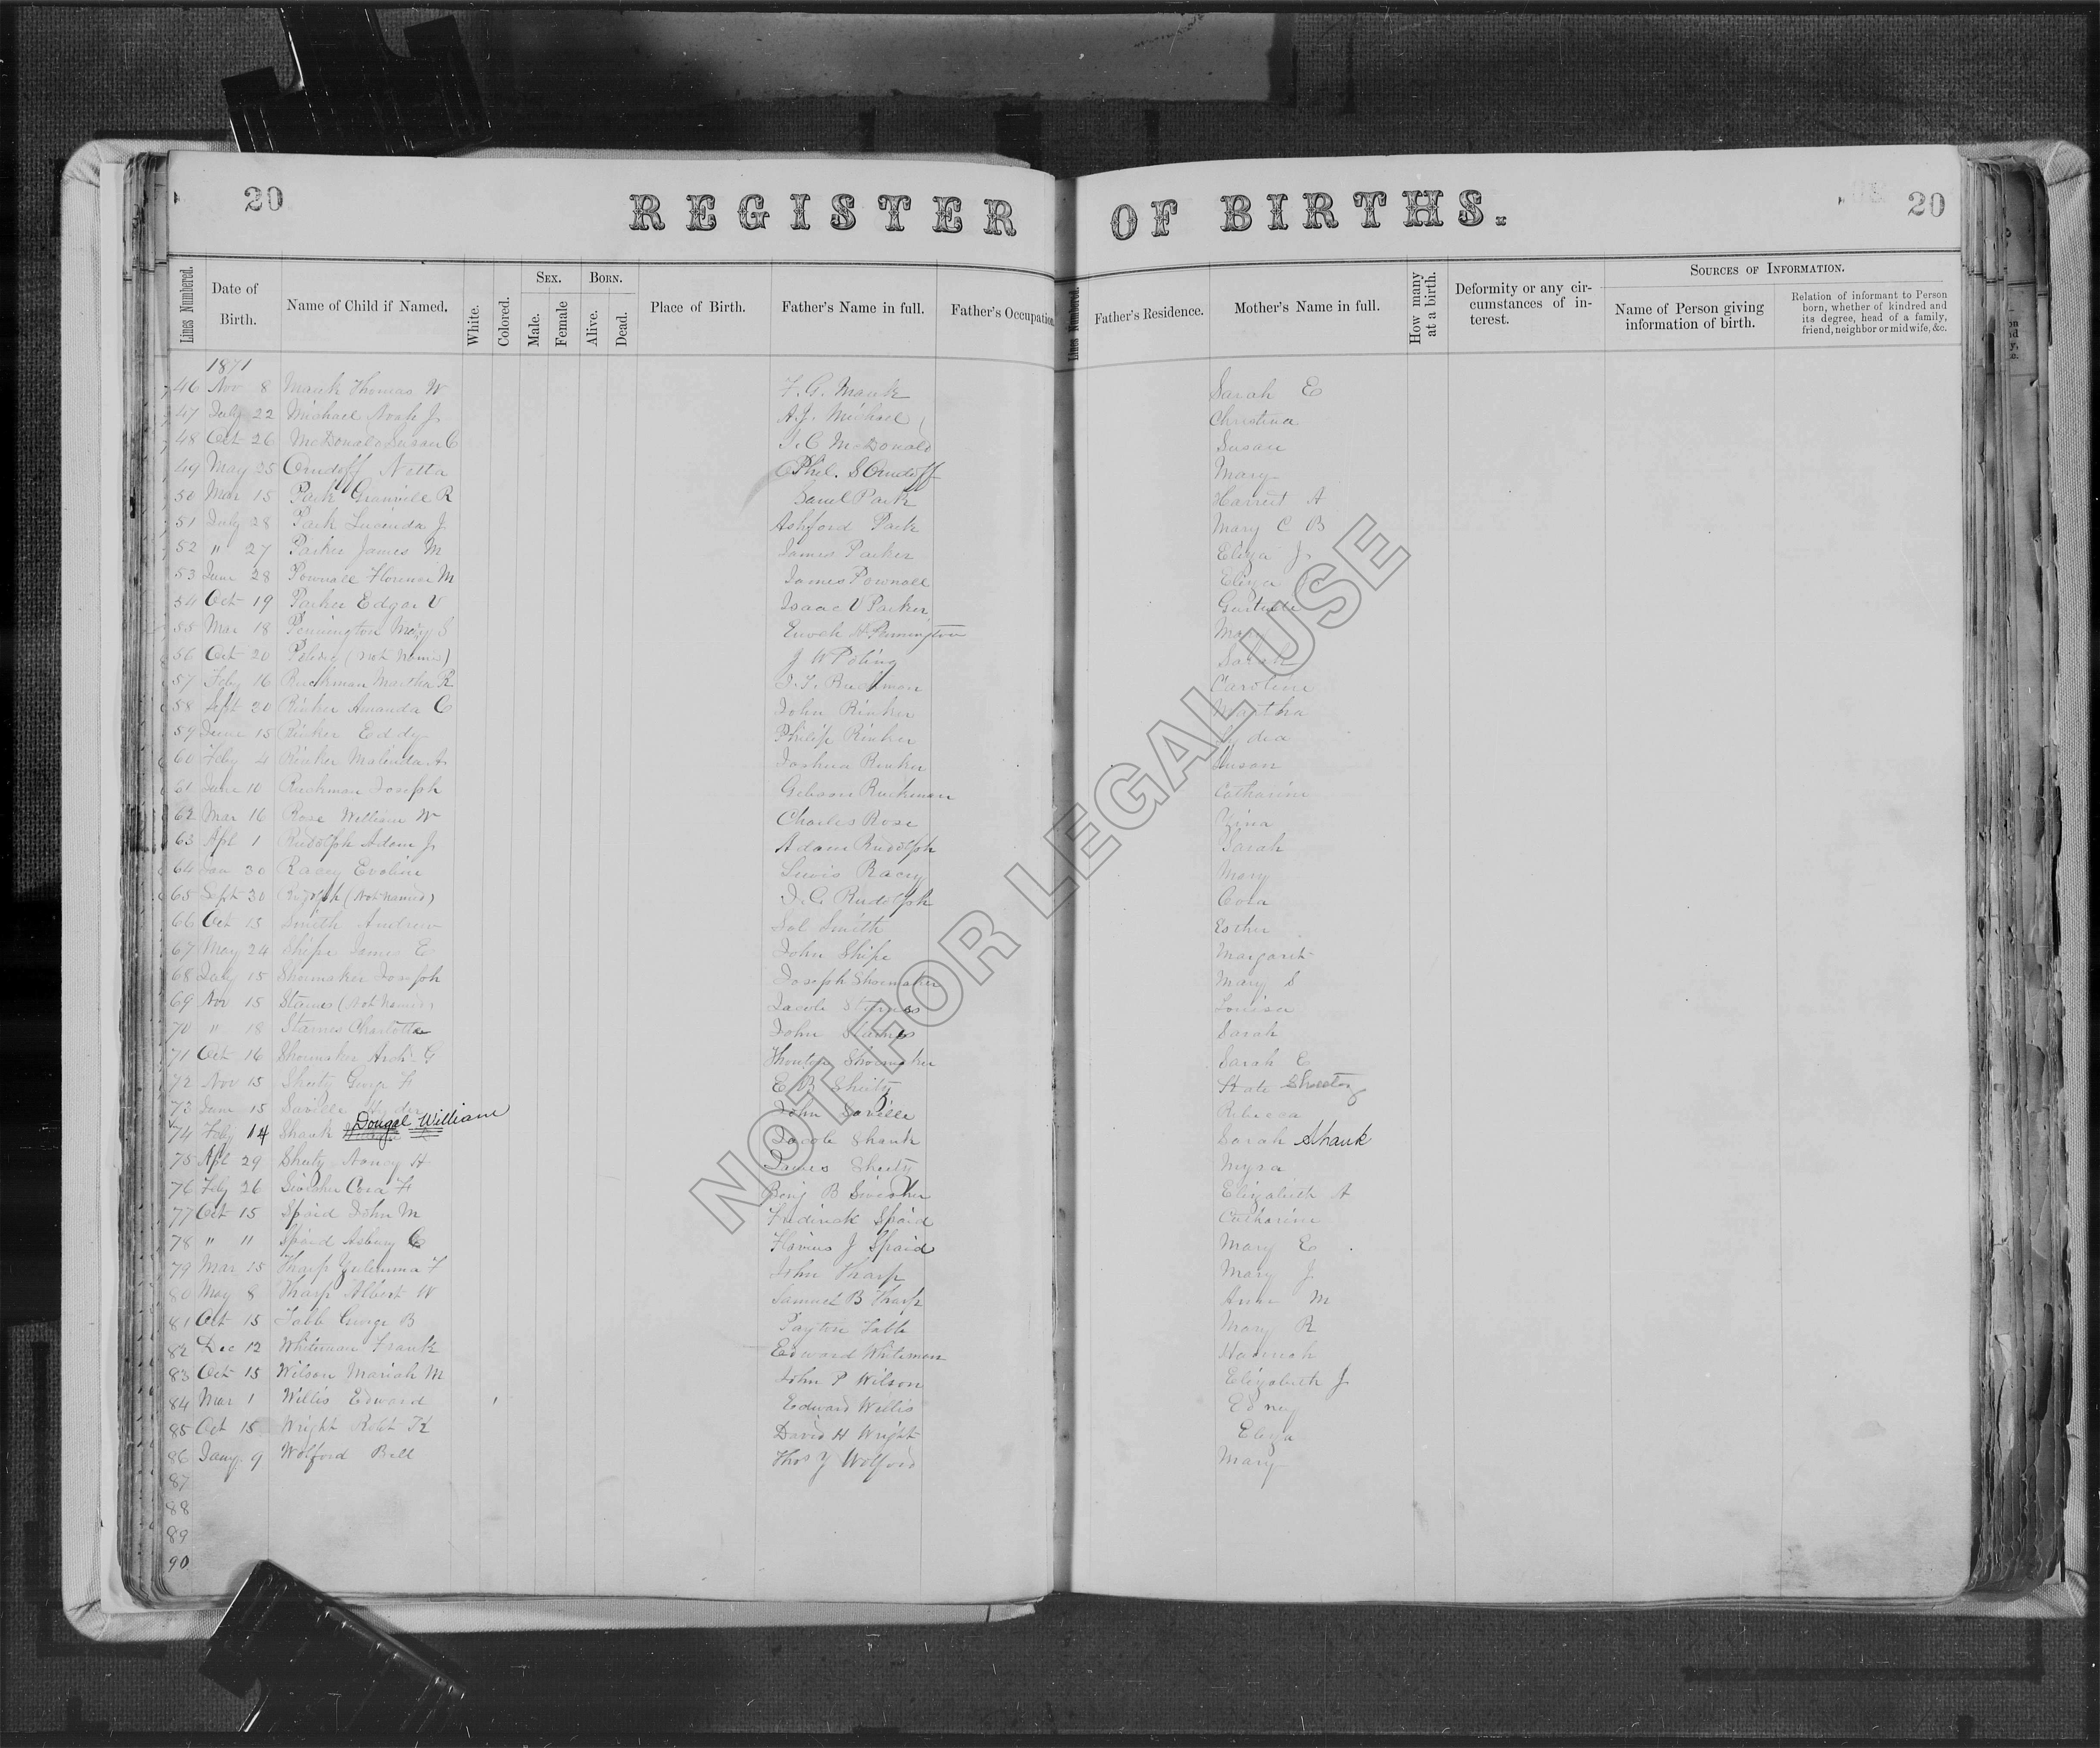 20 REGISTER OF BIRTHS. 20
Lines Numbered. Date of Birth. Name of Child if Named. White. Colored. Sex. Male. Female Born. Alive. Dead. Place of Birth. Father's Name in full. Father's Occupation Lines Numbered. Father's Residence. Mother's Name in full. How many at a birth. Deformity or any circumstances of interest. Sources of Information. Name of Person giving information of birth. Relation of informant to Person born, whether of kindred and its degree, head of a family, friend, neighbor or midwife, &c.
1871
46 Nov 8 Mauk Thomas W F. G. Mauk Sarah E
47 July 22 Michael Noah J A. J. Michael Christina
48 Oct 26 McDonald Susan C J. C McDonald Susan
49 May 25 Orndoff Netta Phil. S Orndoff Mary
50 Mar 15 Park Granville R Saml Park Harriet A
51 July 28 Park Lucinda J Ashford Park Mary C B
52 " 27 Parker James M James Parker Eliza J
53 June 28 Pownall Florence M James Pownall Eliza
54 Oct 19 Parker Edgar V Isaac V Parker Gertrude
55 Mar 18 Pennington Mary S Enoch H Pennington Mary
56 Oct 20 Poling (Not Named) J W Poling Sarah
57 Feby 16 Ruckman Martha R J. T. Ruckman Caroline
58 Sept 20 Rinker Amanda C John Rinker Martha
59 June 15 Rinker Eddy Philip Rinker Lydia
60 Feby 4 Rinker Malinda A Joshua Rinker Susan
61 June 10 Ruckman Joseph Gibson Ruckman Catharine
62 Mar 16 Rose William W Charles Rose
63 Apl 1 Rudolph Adam J Adam Rudolph Sarah
64 Jan 30 Racey Eveline Lewis Racey Mary
65 Sept 30 Rudolph (Not Named) J. C. Rudolph Cora
66 Oct 15 Smith Andrew Sol Smith Esther
67 May 24 Shipe James E John Shipe Margaret
68 July 15 Shoemaker Joseph Joseph Shoemaker Mary S
69 Nov 15 Starnes (Not Named) Jacob Starnes Louisa
70 " 18 Starnes Charlotte John Starnes Sarah
71 Oct 16 Shoemaker Arch. G Thornton Shoemaker Sarah E
72 Nov 15 Sheetz George F E B Sheetz Kate Sheetz
73 June 15 Saville Hyder John Saville Rebecca
74 Feby 14 Shank Dougal William Jacob Shank Sarah Shank
75 Apl 29 Sheetz Nancy H James Sheetz Myra
76 Feby 26 Sirbaugh Cora F Benj B Elizabeth A
77 Oct 15 Spaid John M Frederick Spaid Catharine
78 " 11 Spaid Asbury C Flavius J Spaid Mary E
79 Mar 15 Tharp Zulemma F John Tharp Mary J
80 May 8 Tharp Albert W Samuel B Tharp Ann M
81 Oct 15 Tabb George B Payton Tabb Mary R
82 Dec 12 Whiteman Frank Edward Whiteman Hannah
83 Oct 15 Wilson Mariah M John P Wilson Elizabeth J
84 Mar 1 Willis Edward Edward Willis Edney
85 Oct 15 Wright Robt K David H Wright Eliza
86 Jany 9 Wolford Bell Thos Y Wolford Mary
87
88
89
90
NOT FOR LEGAL USE